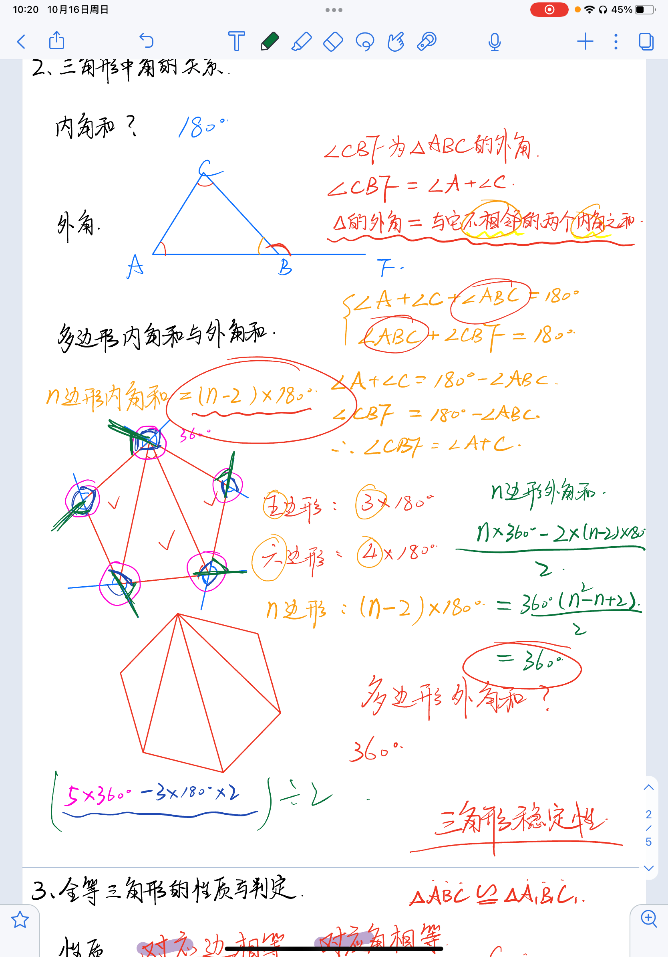 10:20 10月16日周日
45%
2、三角形中角的关系.
内角和？ 180°
∠CBF为△ABC的外角.
∠CBF = ∠A+∠C.
△的外角 = 与它不相邻的两个内角之和.
外角.
C
A
B
F.
∠A+∠C+∠ABC = 180°
∠ABC+∠CBF = 180°
多边形内角和与外角和.
n边形内角和 = (n-2)×180°
∠A+∠C = 180°-∠ABC.
∠CBF = 180°-∠ABC.
∴ ∠CBF=∠A+C.
360°
五边形： 3×180°
六边形： 4×180°
n边形：(n-2)×180°
n边形外角和.
n×360°-2×(n-2)×180
2.
= 360°(n²-n+2).
2
= 360°
多边形外角和？
360°
(5×360°-3×180°×2)÷2
三角形稳定性.
2
5
3、全等三角形的性质与判定.
△ABC ≌ △A₁B₁C₁.
性质 对应边相等 对应角相等